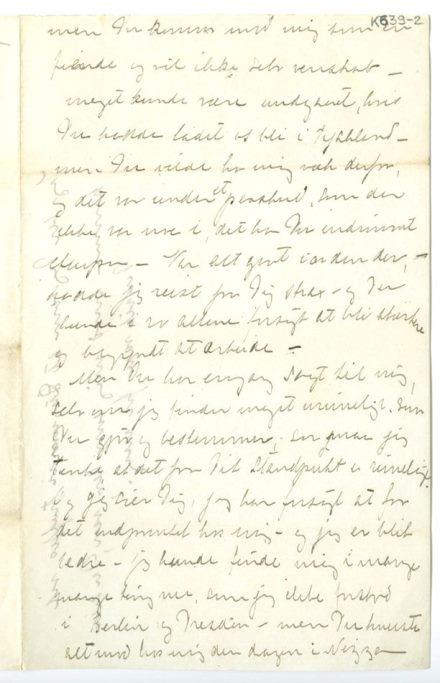 K639-2
men Du kommer mod mig som en
fiende og vil ikke selv venskab –
meget kunde være undgaaet, hvis
Du hadde ladet os bli i Tyskland –
men Du vilde ha mig væk derfra,
og det var under et paaskud, som der
ikke var noe i, det har Du indrømmet
– Var alt gjort i orden der, –
hadde jeg reist fra Dig strax – og Du
kunde i ro allene forsøgt at bli stærkere
og begyndt at arbeide –
Men Du har engang sagt til mig,
selv om jeg finder meget urimeligt som
Du gjør og bestemmer – saa maa jeg
tænke at det fra Dit Standpunkt er rimeligt.
Og jeg sier Dig, jeg har forsøgt at faa
det indprentet hos mig – og jeg er blit
bedre – jeg kunde finde mig i mange
mange ting nu, som jeg ikke forstod
i Berlin og Dresden – men Du knuste
alt mod hos mig den dagen i Nizza